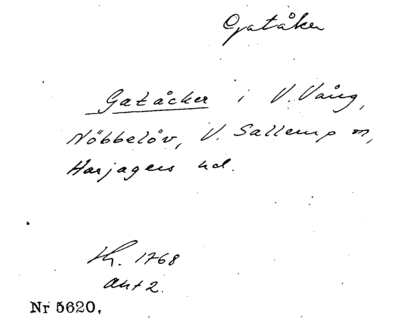 Gatåker
Gatåcker i V. Vång,
Nöbbelöv, V. Sallerup sn,
Harjagers hd.
Kh. 1768
akt 2.
Nr 5620.